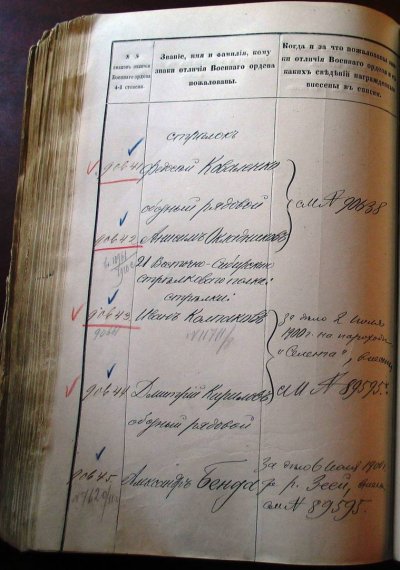 № №
знаковъ отличія
Военнаго ордена
4-й степени.
Званіе, имя и фамилія, кому
знаки отличія Военнаго ордена
пожалованы.
Когда и за что пожалованы
ли отличія Военнаго ордена и
какихъ свѣдѣній награжденные
внесены въ списки.
стрѣлокъ
90641 Коваленко
сборный рядовой
см № 90638
90642
21 Восточно-Сибирскаго
стрѣлковаго полка:
стрѣлки:
90643 Иванъ Колпаковъ
За дѣло 2 Іюля
1900 г. на пароходѣ
"Селенга",
90644 Дмитрій Кириловъ
см № 89595.
сборный рядовой
90645 Александръ Бенда
За дѣло 6 Іюля 1900 г.
р. Зеей,
см № 89595.